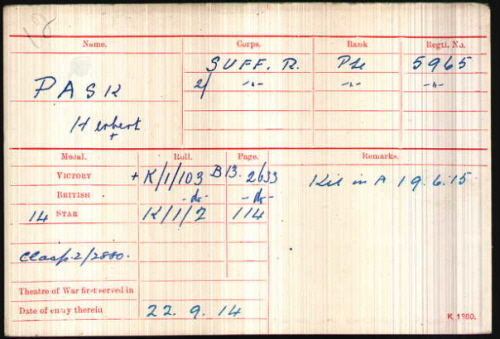 18
Name. Corps. Rank Regtl. No.
SUFF. R. Pte 5965
PASK 2/ -"- -"- -"-
Herbert
+
Medal. Roll. Page. Remarks.
VICTORY + K/1/103 B13. 2633 Kil in A 19.6.15
BRITISH -do- -do-
14 STAR K/1/2 114
Clasp 2/2880.
Theatre of War first served in
Date of entry therein 22.9.14
K. 1380.